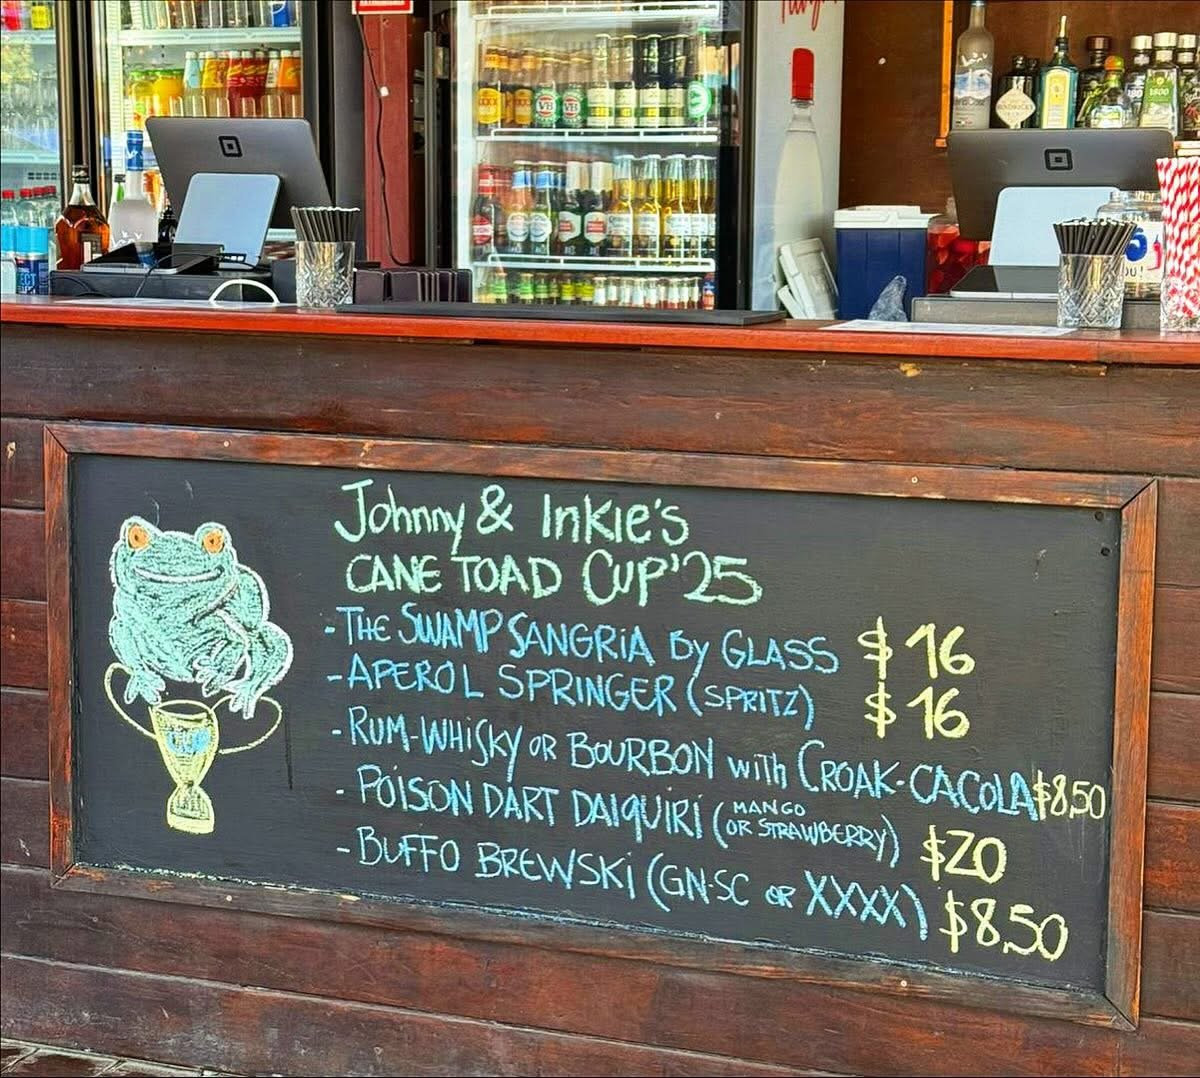 VB
VB
HENDRICK'S
1800
Johnny & Inkie's
CANE TOAD CUP '25
- THE SWAMP SANGRiA By GLASS $16
- APEROL SPRINGER (SPRITZ) $16
- RUM-WHiSKy OR BOURBON with CROAK-CACOLA $8,50
- POiSON DART DAIQUIRi (MANGO OR STRAWBERRY) $20
- BUFFO BREWSKi (GN-SC OR XXXX) $8,50
CUP